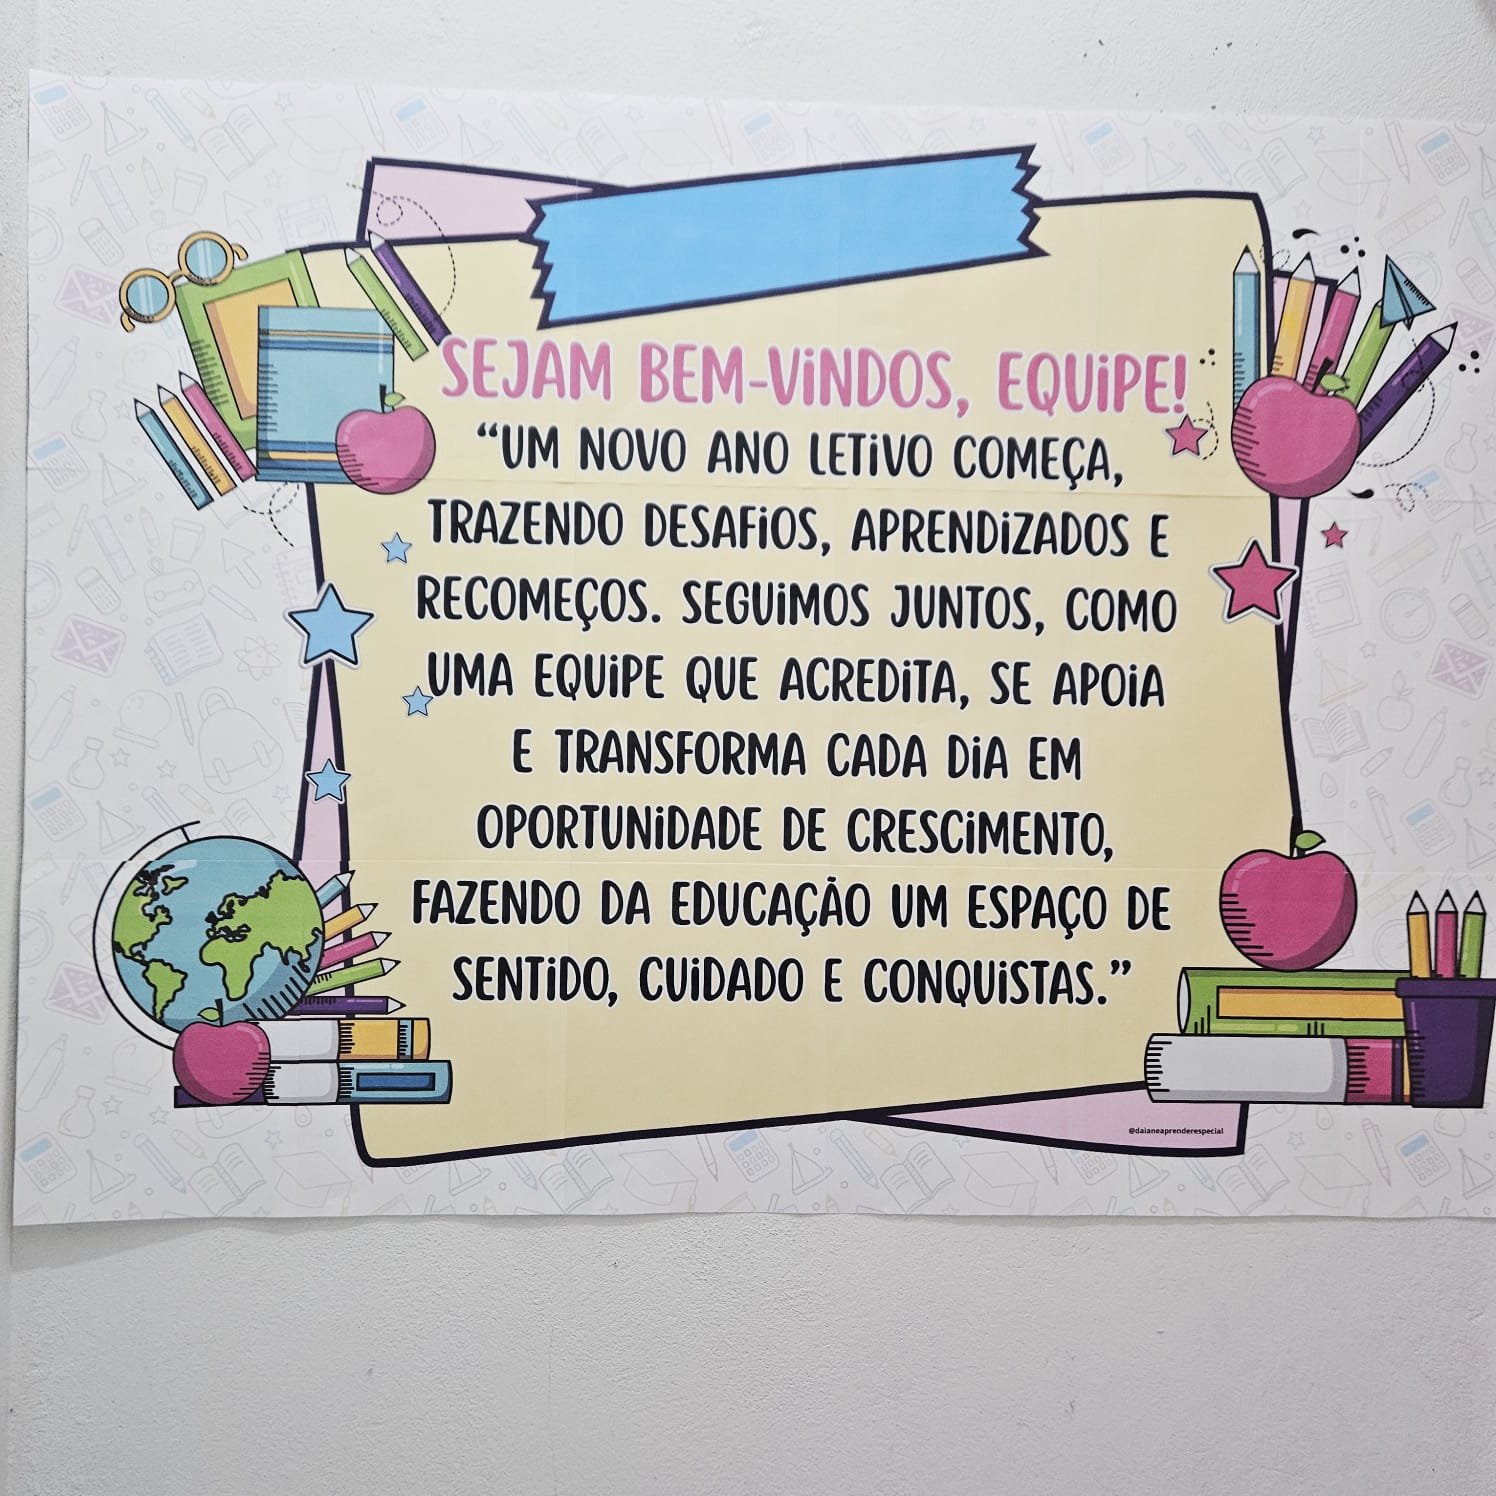 SEJAM BEM-VINDOS, EQUIPE!
“UM NOVO ANO LETIVO COMEÇA,
TRAZENDO DESAFIOS, APRENDIZADOS E
RECOMEÇOS. SEGUIMOS JUNTOS, COMO
UMA EQUIPE QUE ACREDITA, SE APOIA
E TRANSFORMA CADA DIA EM
OPORTUNIDADE DE CRESCIMENTO,
FAZENDO DA EDUCAÇÃO UM ESPAÇO DE
SENTIDO, CUIDADO E CONQUISTAS.”
@daianeaprenderespecial